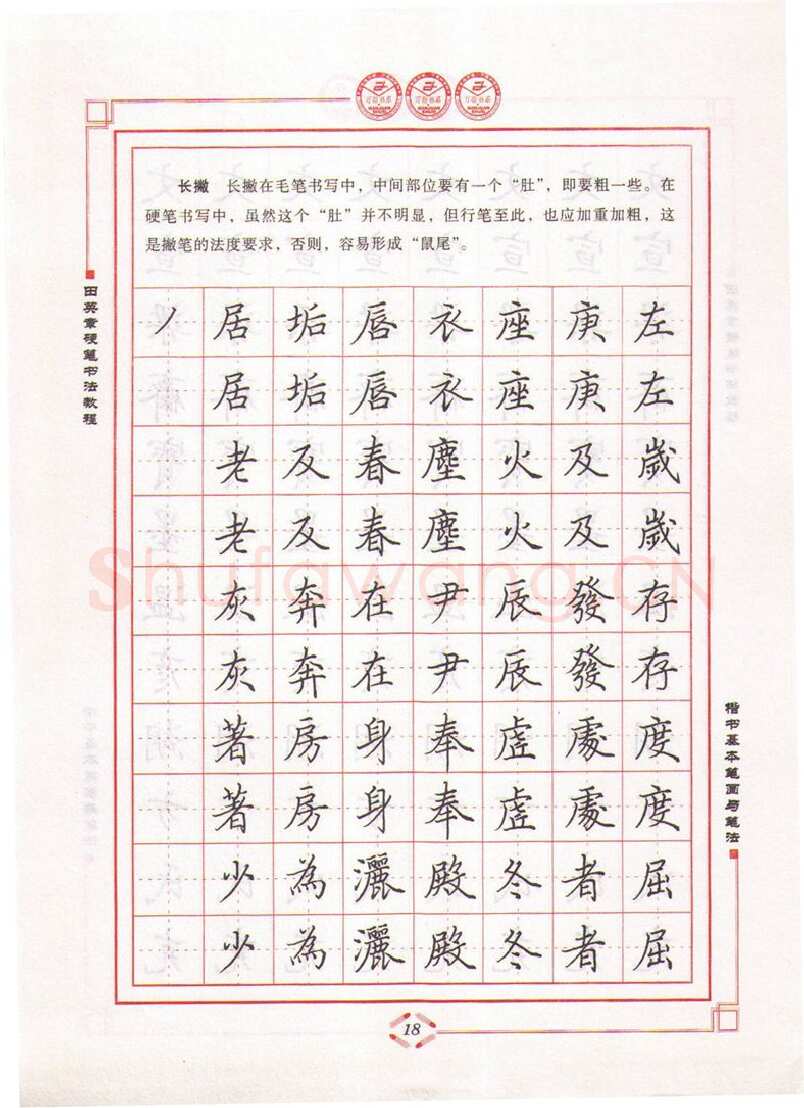 长撇 长撇在毛笔书写中，中间部位要有一个“肚”，即要粗一些。在
硬笔书写中，虽然这个“肚”并不明显，但行笔至此，也应加重加粗，这
是撇笔的法度要求，否则，容易形成“鼠尾”。
田英章硬笔书法教程
丿居垢唇衣座庚左
居垢唇衣座庚左
老反春塵火及歲
老反春塵火及歲
灰奔在尹辰發存
灰奔在尹辰發存
著房身奉虛處度
著房身奉虛處度
少為灑殿冬者屈
少為灑殿冬者屈
楷书基本笔画与笔法
Shufawang.CN
18